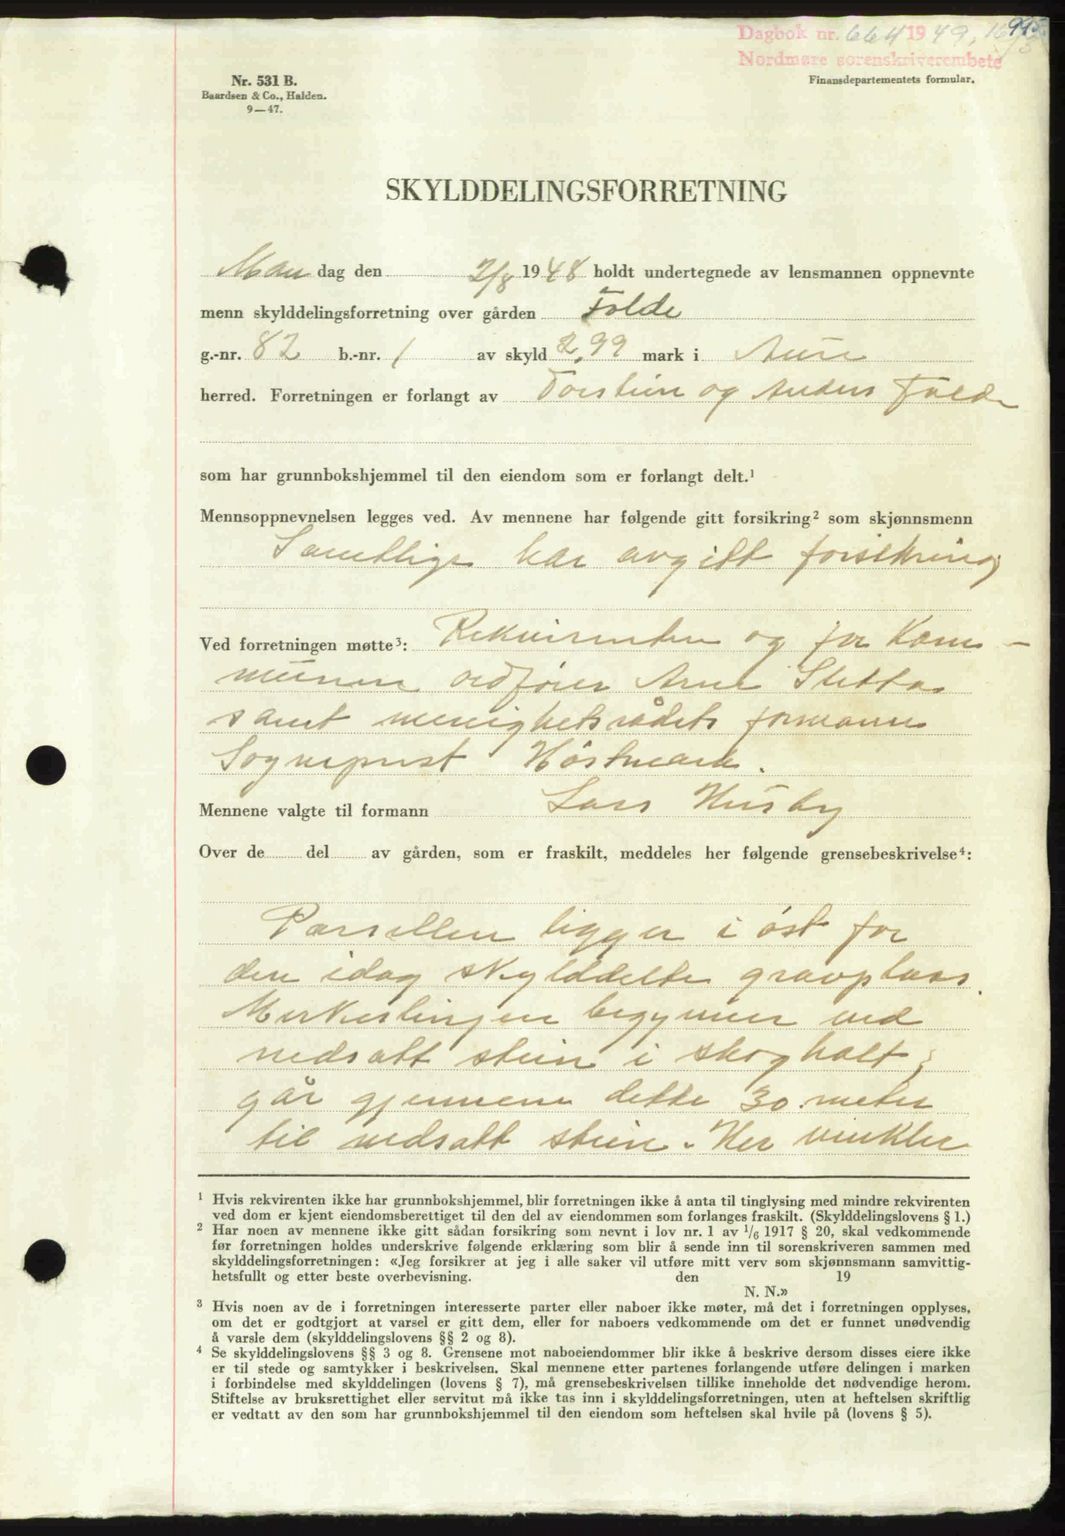 995
Dagbok nr. 664 1949, 16/3
Nordmøre sorenskriverembete
Nr. 531 B.
Baardsen & Co., Halden.
9—47.
Finansdepartementets formular.
SKYLDDELINGSFORRETNING
Man dag den 2/8 1948 holdt undertegnede av lensmannen oppnevnte
menn skylddelingsforretning over gården Folde
g.-nr. 82 b.-nr. 1 av skyld 2,99 mark i Aure
herred. Forretningen er forlangt av Torstein og Anders Folde
som har grunnbokshjemmel til den eiendom som er forlangt delt.¹
Mennsoppnevnelsen legges ved. Av mennene har følgende gitt forsikring² som skjønnsmenn
Samtlige har avgitt forsikring
Ved forretningen møtte³: Rekvirenten og for Kom-
munen ordfører Arne Slettas
samt menighetsrådets formann
Sogneprest Høstmark.
Mennene valgte til formann Lars Husby
Over de del av gården, som er fraskilt, meddeles her følgende grensebeskrivelse⁴:
Parsellen ligger i øst for
den idag skylddelte gravplass.
Merkeslinjen begynner ved
nedsatt stein i skogholt;
går gjennem dette 30 meter
til nedsatt stein. Her vinkler
¹ Hvis rekvirenten ikke har grunnbokshjemmel, blir forretningen ikke å anta til tinglysing med mindre rekvirenten
ved dom er kjent eiendomsberettiget til den del av eiendommen som forlanges fraskilt. (Skylddelingslovens § 1.)
² Har noen av mennene ikke gitt sådan forsikring som nevnt i lov nr. 1 av 1/6 1917 § 20, skal vedkommende
før forretningen holdes underskrive følgende erklæring som blir å sende inn til sorenskriveren sammen med
skylddelingsforretningen: «Jeg forsikrer at jeg i alle saker vil utføre mitt verv som skjønnsmann samvittig-
hetsfullt og etter beste overbevisning. den 19
N. N.»
³ Hvis noen av de i forretningen interesserte parter eller naboer ikke møter, må det i forretningen opplyses,
om det er godtgjort at varsel er gitt dem, eller for naboers vedkommende om det er funnet unødvendig
å varsle dem (skylddelingslovens §§ 2 og 8).
⁴ Se skylddelingslovens §§ 3 og 8. Grensene mot naboeiendommer blir ikke å beskrive dersom disses eiere ikke
er til stede og samtykker i beskrivelsen. Skal mennene etter partenes forlangende utføre delingen i marken
i forbindelse med skylddelingen (lovens § 7), må grensebeskrivelsen tillike inneholde det nødvendige herom.
Stiftelse av bruksrettighet eller servitut må ikke tas inn i skylddelingsforretningen, uten at heftelsen skriftlig
er vedtatt av den som har grunnbokshjemmel til den eiendom som heftelsen skal hvile på (lovens § 5).